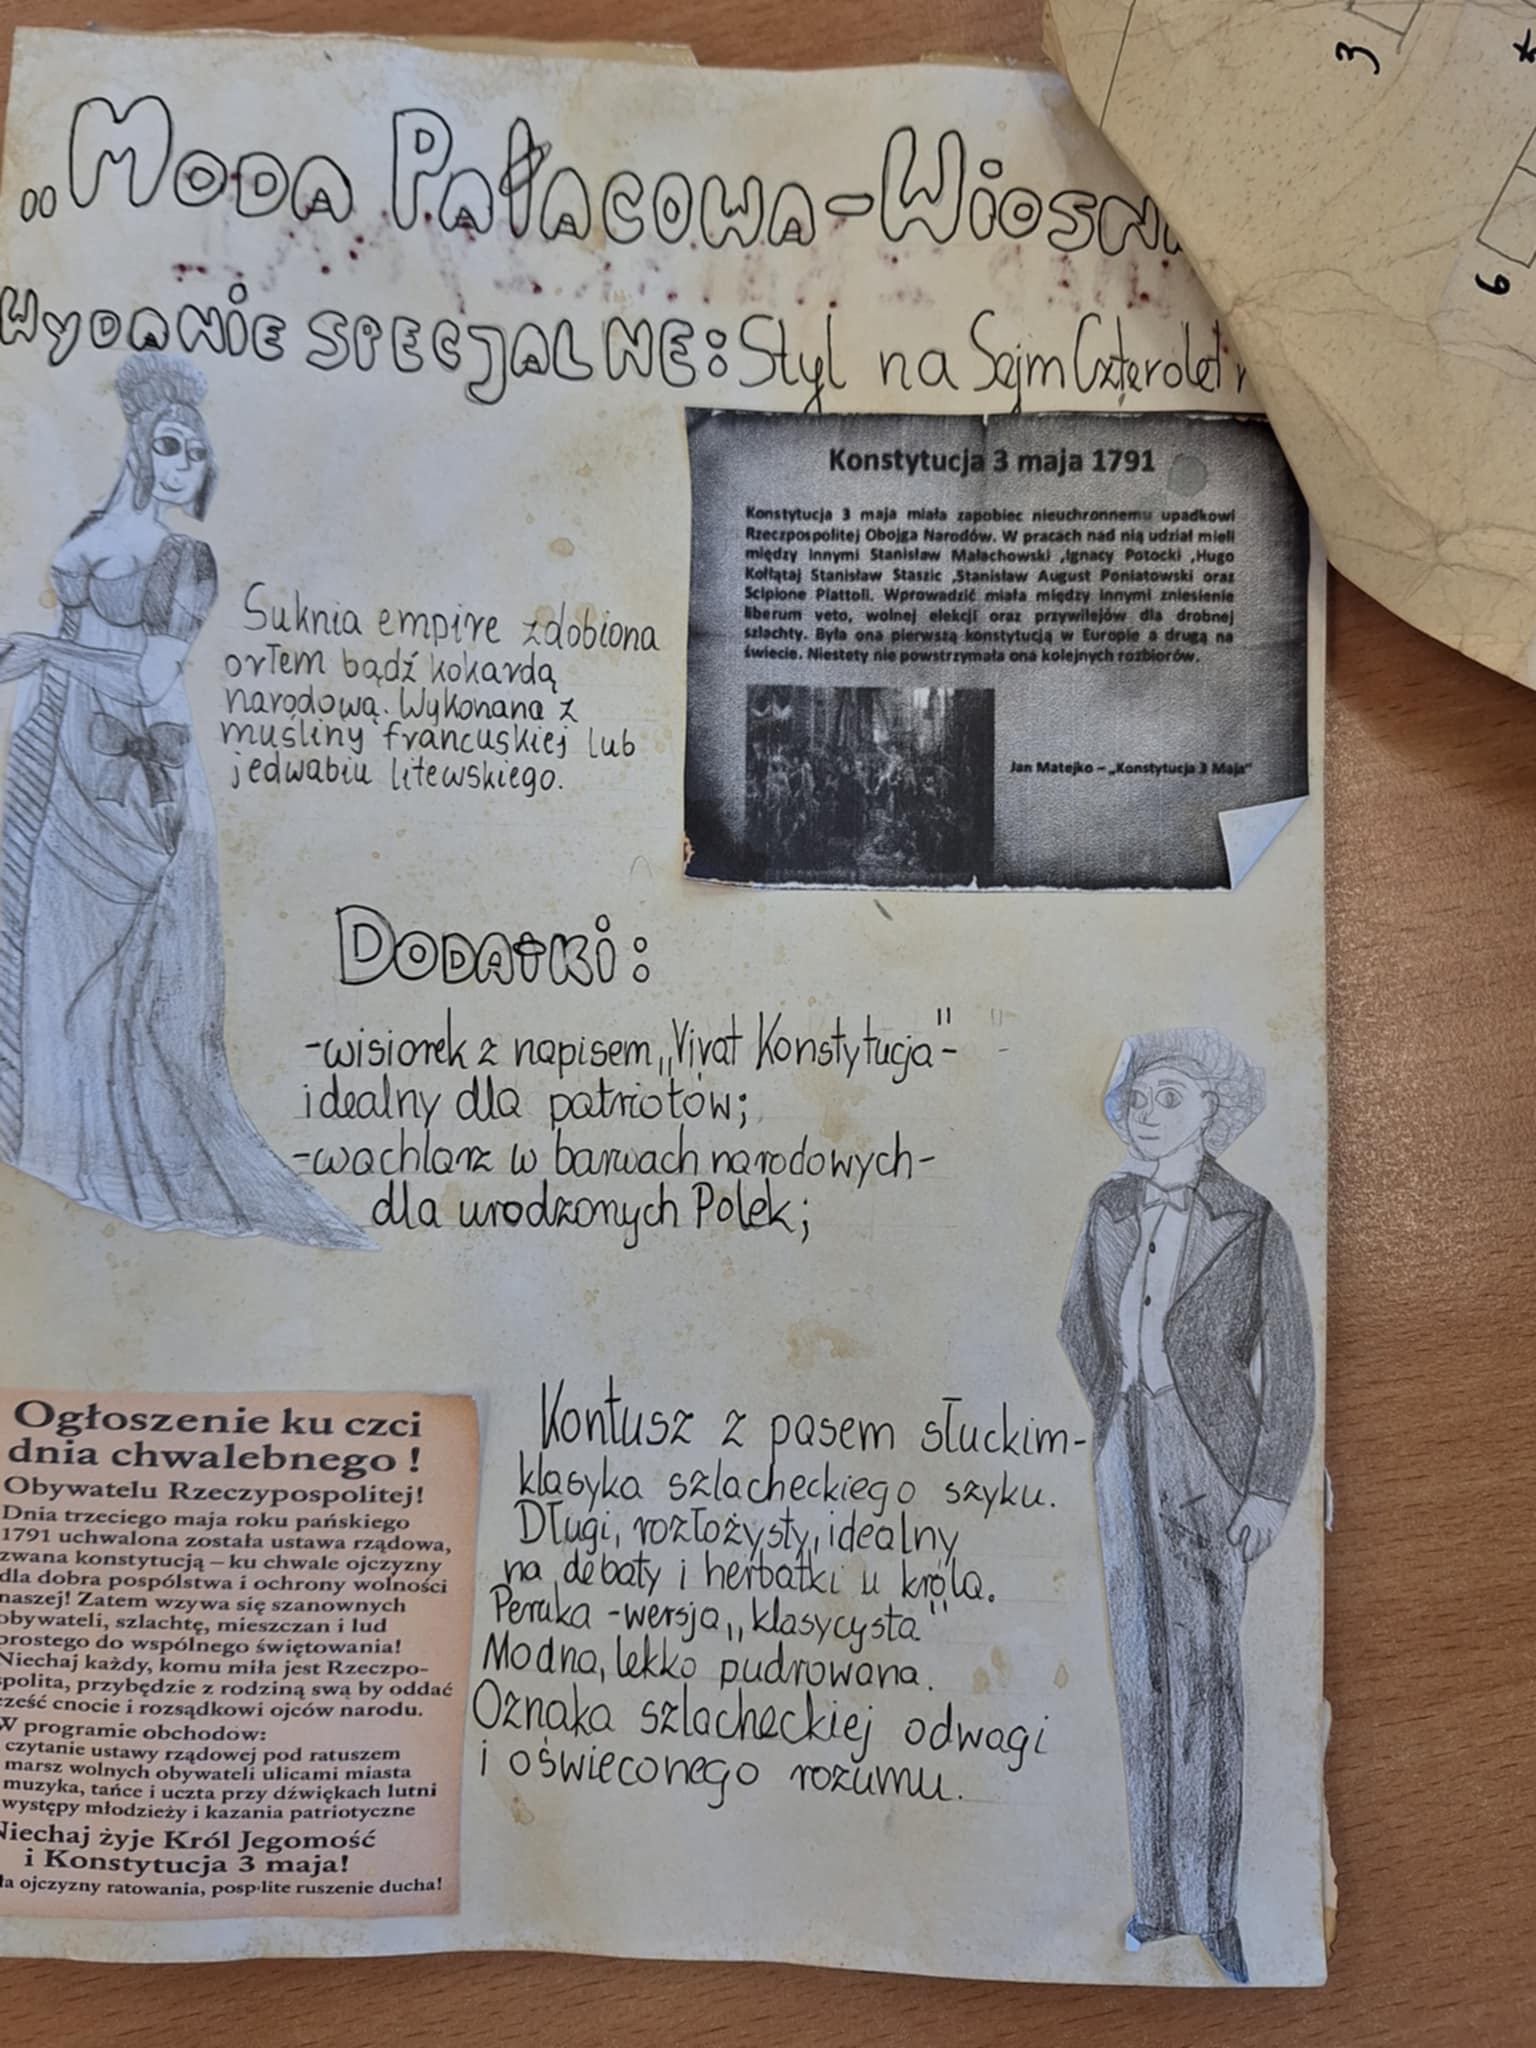 „Moda Pałacowa-Wiosna
Wydanie specjalne: Styl na Sejm Czteroletn
Konstytucja 3 maja 1791
Konstytucja 3 maja miała zapobiec nieuchronnemu upadkowi
Rzeczpospolitej Obojga Narodów. W pracach nad nią udział mieli
między innymi Stanisław Małachowski ,Ignacy Potocki ,Hugo
Kołłątaj Stanisław Staszic ,Stanisław August Poniatowski oraz
Scipione Piattoli. Wprowadzić miała między innymi zniesienie
liberum veto, wolnej elekcji oraz przywilejów dla drobnej
szlachty. Była ona pierwszą konstytucją w Europie a drugą na
świecie. Niestety nie powstrzymała ona kolejnych rozbiorów.
Jan Matejko – „Konstytucja 3 Maja"
Suknia empire zdobiona
orłem bądź kokardą
narodową. Wykonana z
muśliny francuskiej lub
jedwabiu litewskiego.
Dodatki:
-wisiorek z napisem „Vivat Konstytucja"-
idealny dla patriotów;
-wachlarz w barwach narodowych-
dla urodzonych Polek;
Kontusz z pasem słuckim-
klasyka szlacheckiego szyku.
Długi, rozłożysty, idealny
na debaty i herbatki u króla.
Peruka -wersja „klasycysta"
Modna, lekko pudrowana.
Oznaka szlacheckiej odwagi
i oświeconego rozumu.
Ogłoszenie ku czci
dnia chwalebnego !
Obywatelu Rzeczypospolitej!
Dnia trzeciego maja roku pańskiego
1791 uchwalona została ustawa rządowa,
zwana konstytucją – ku chwale ojczyzny
dla dobra pospólstwa i ochrony wolności
naszej! Zatem wzywa się szanownych
obywateli, szlachtę, mieszczan i lud
prostego do wspólnego świętowania!
Niechaj każdy, komu miła jest Rzeczpo-
spolita, przybędzie z rodziną swą by oddać
cześć cnocie i rozsądkowi ojców narodu.
W programie obchodów:
czytanie ustawy rządowej pod ratuszem
marsz wolnych obywateli ulicami miasta
muzyka, tańce i uczta przy dźwiękach lutni
występy młodzieży i kazania patriotyczne
Niechaj żyje Król Jegomość
i Konstytucja 3 maja!
la ojczyzny ratowania, posp·lite ruszenie ducha!
3
6